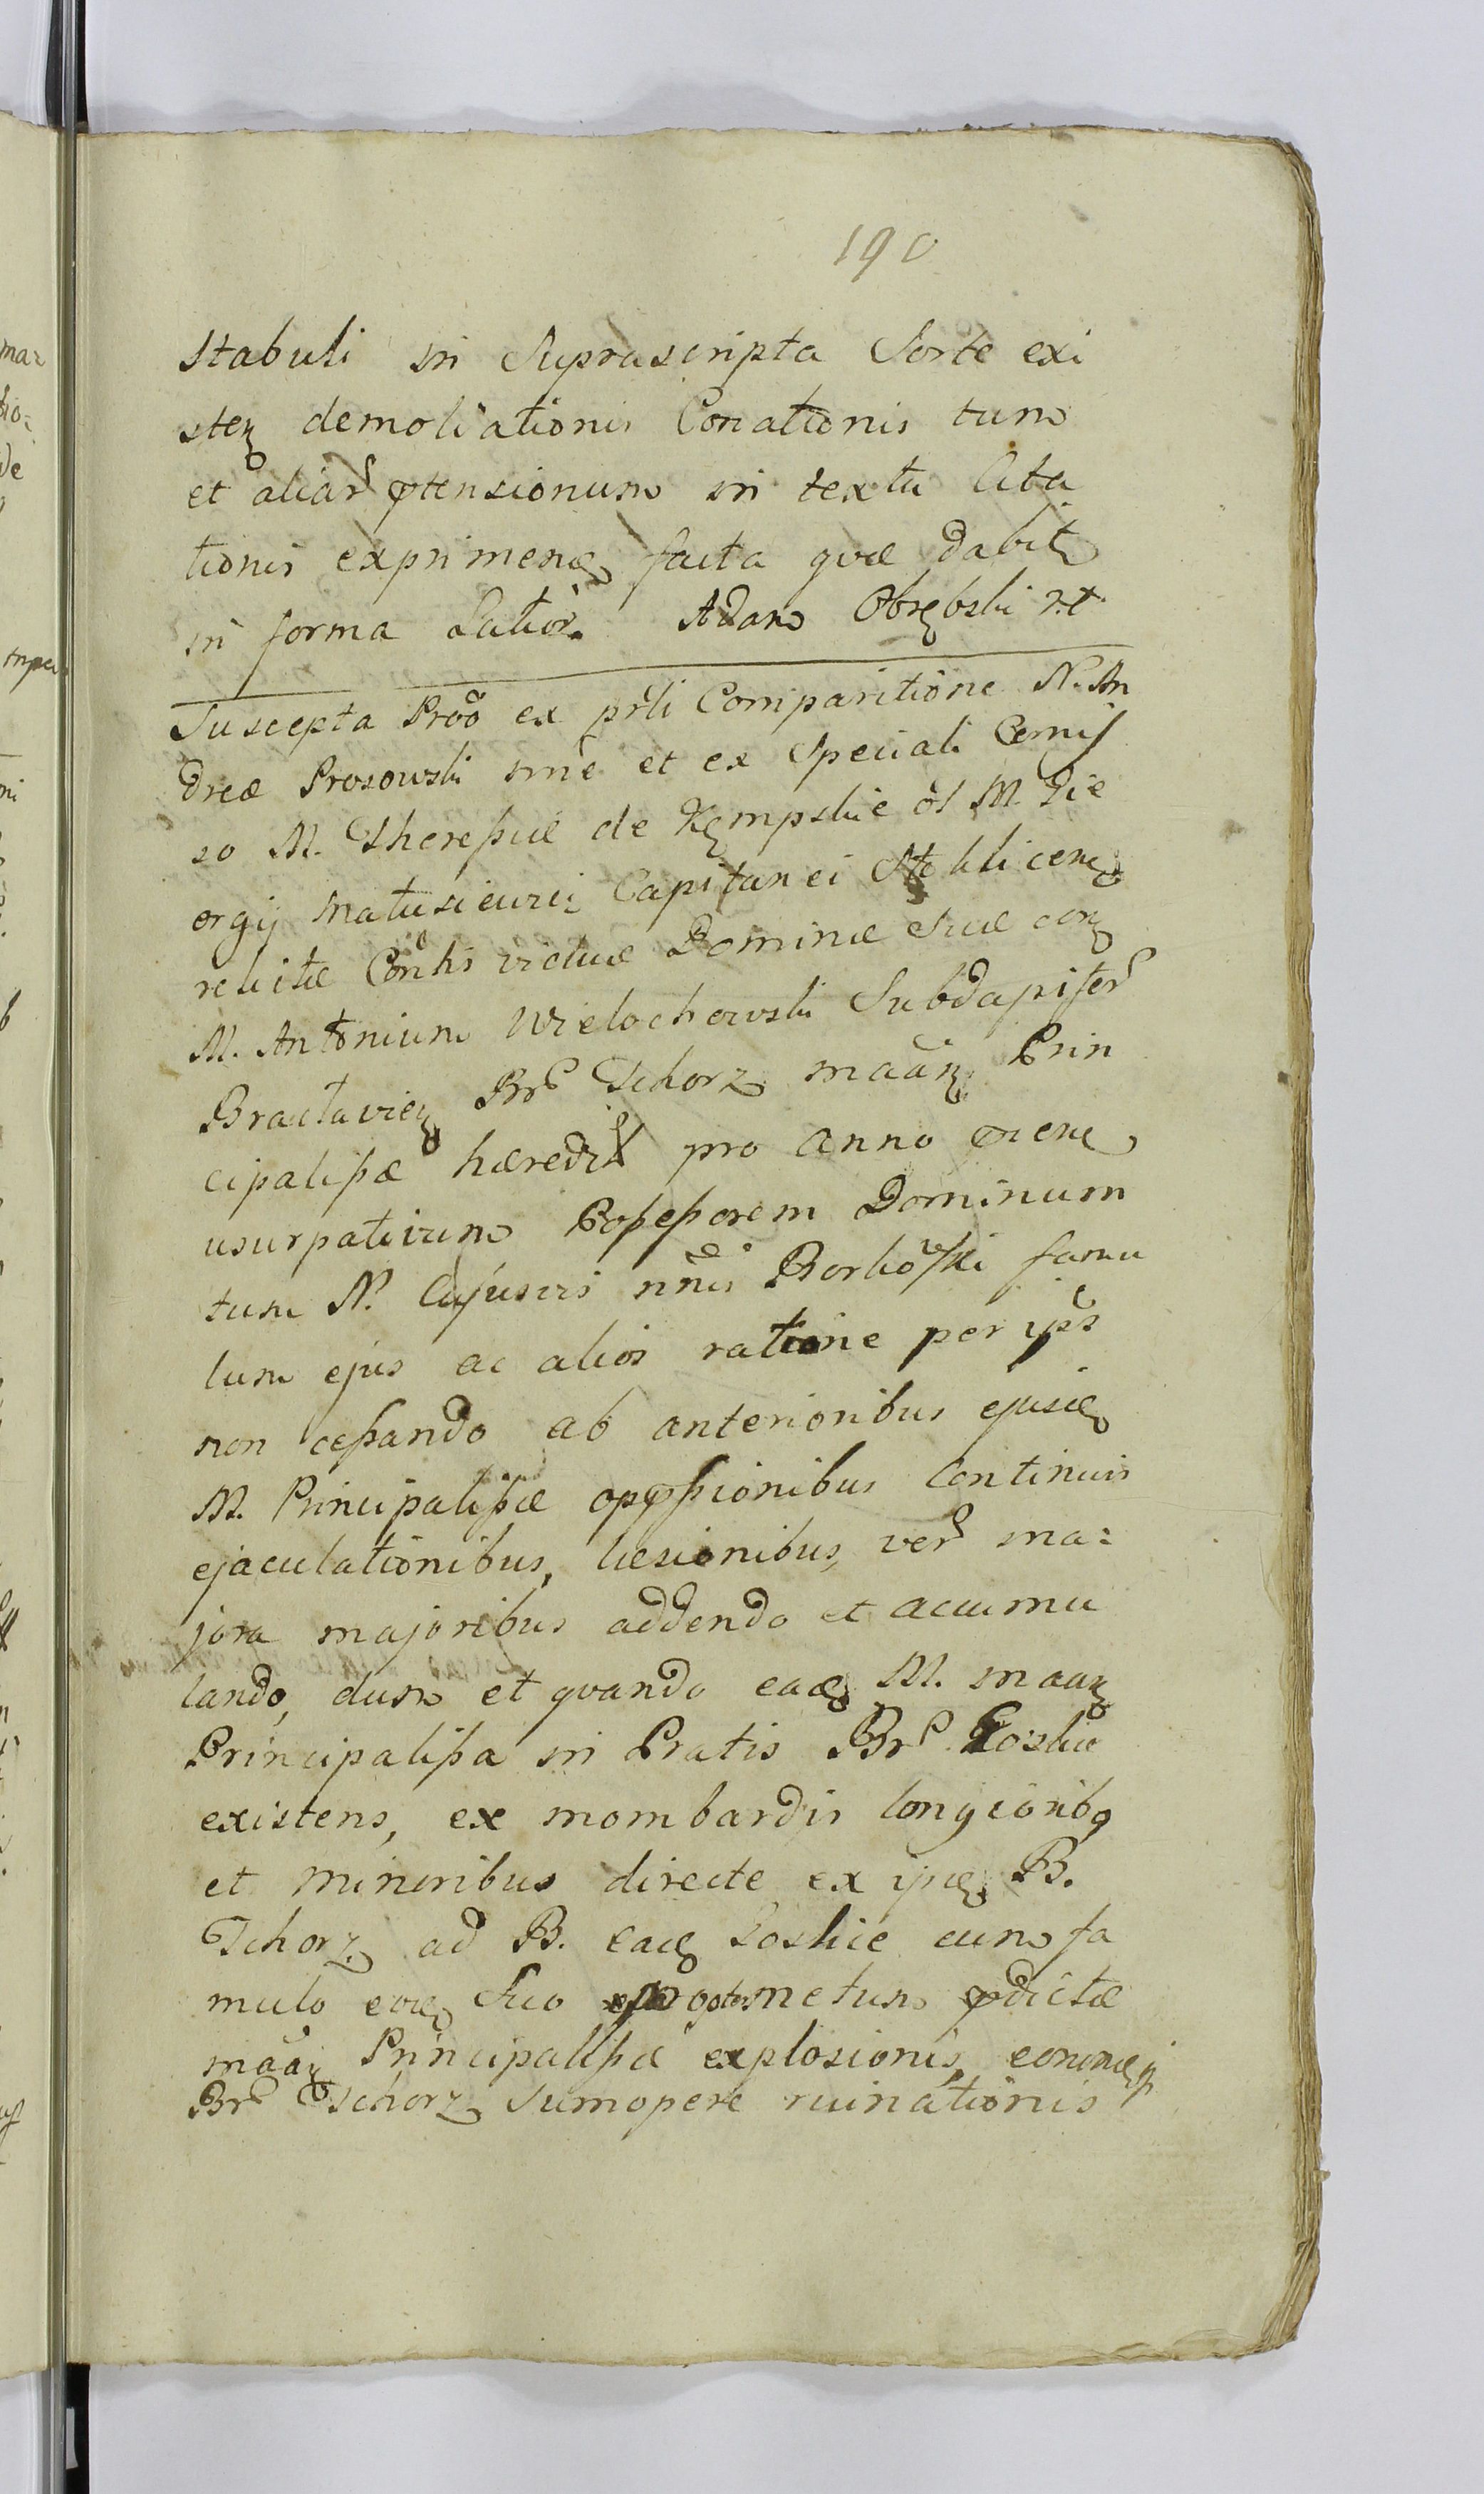 190
stabuli in Suprascripta Sorte exi
sten demoliationis Conationis tum
et aliar ptensionum in textu Cita
tionis exprimen facta quæ dabit
in forma Latior. Adam Obrębski r.t
Suscepta Prõõ ex prli Comparitione N. An
dreæ Prosowski mne et ex Speciali Comis
so M. Theressiæ de Kempskie ol M. Gie
orgij Matusiewicz Capitanei Stoklicen
relictæ Conthis viduæ Dominæ Suæ con
M. Antonium Wielochowski Subdapifer
Braclavien Br Tchorz maan Prin
cipalissæ hæredit pro anno præne
usurpativum Possessorem Dominum
tum N. Cujusvis nnis Borkowski famu
lum ejus ac alios ratione per ips
non cessando ab anterioribus ejusd
M. Principalissæ oppssionibus continuis
ejaculationibus, læsionibus, ver ma:
jora majoribus addendo et accumu
lando, dum et quando ead M. maan
Principalissa in Pratis Br Łoskie
existens, ex mombardis longioribq
et minoribus directe ex ips B.
Tchorz ad B. ead Łoskie cum fa
mulo Suo metum pdictæ
maan Principalissæ explosionis,
Br Tchorz sumopere ruinationis